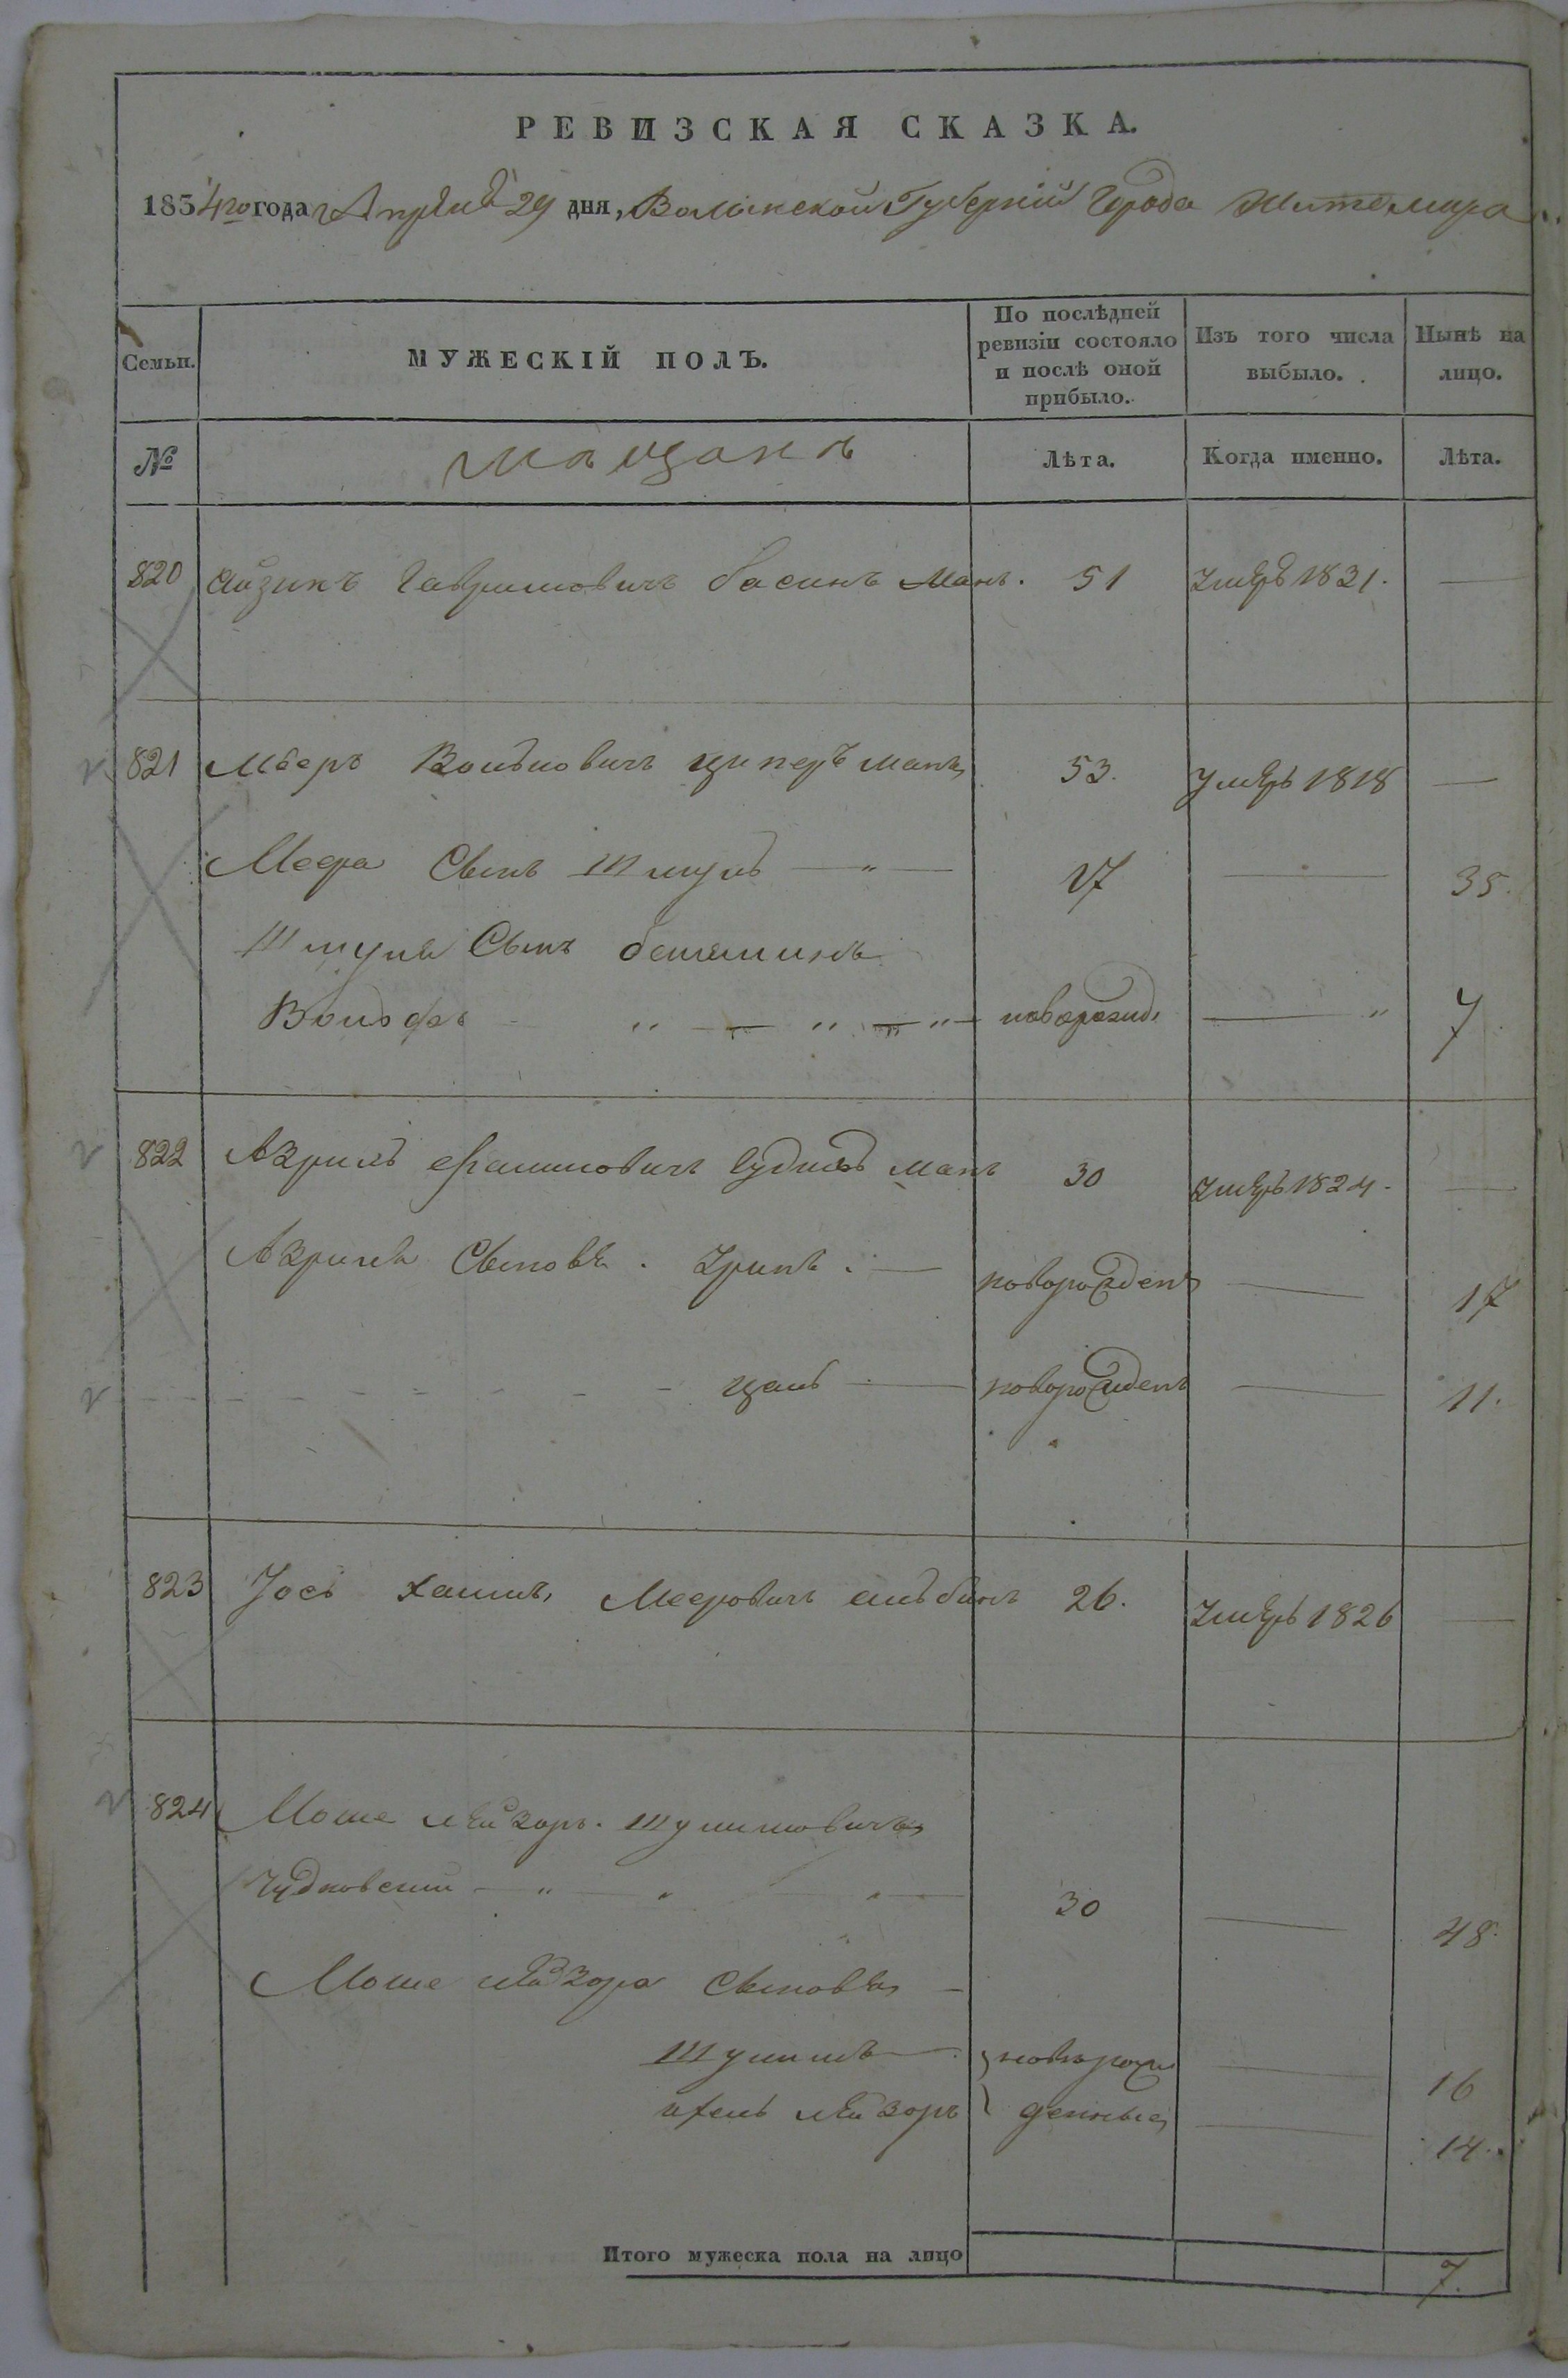 РЕВИЗСКАЯ СКАЗКА.
1854го года Апреля 29 дня, Волынской Губернии Города Житомира
Семьи. МУЖЕСКІЙ ПОЛЪ. По послѣдней ревизіи состояло и послѣ оной прибыло. Изъ того числа выбыло. Нынѣ на лицо.
№ мѣщанъ Лѣта. Когда именно. Лѣта.
820 Айзикъ Гавришовичъ басинъ Манъ. 51 Умеръ 1831. —
821 Мееръ Вольковичъ циперъ манъ 53. Умеръ 1818 —
Меера Сынъ Шмуль — „ — 17 — 35.
Шмуля Сынъ бениминъ
Вольфъ „ — „ — „ — новорожд. — „ 7
822 Азриль Фаишовичъ манъ 30 Умеръ 1824. —
Азриля Сыновья. Зриль. — новорожденъ — 17
цаль — новорожденъ — 11.
823 Іось хаимъ, Мееровичъ 26. Умеръ 1826 —
824 Моше лейзоръ. Шулимовичъ
Чудновский — „ — „ — „ — 30 — 48.
Моше лейзора Сыновья —
Шулимъ — новорож — 16
лейзоръ денные — 14.
Итого мужеска пола на лицо 7.